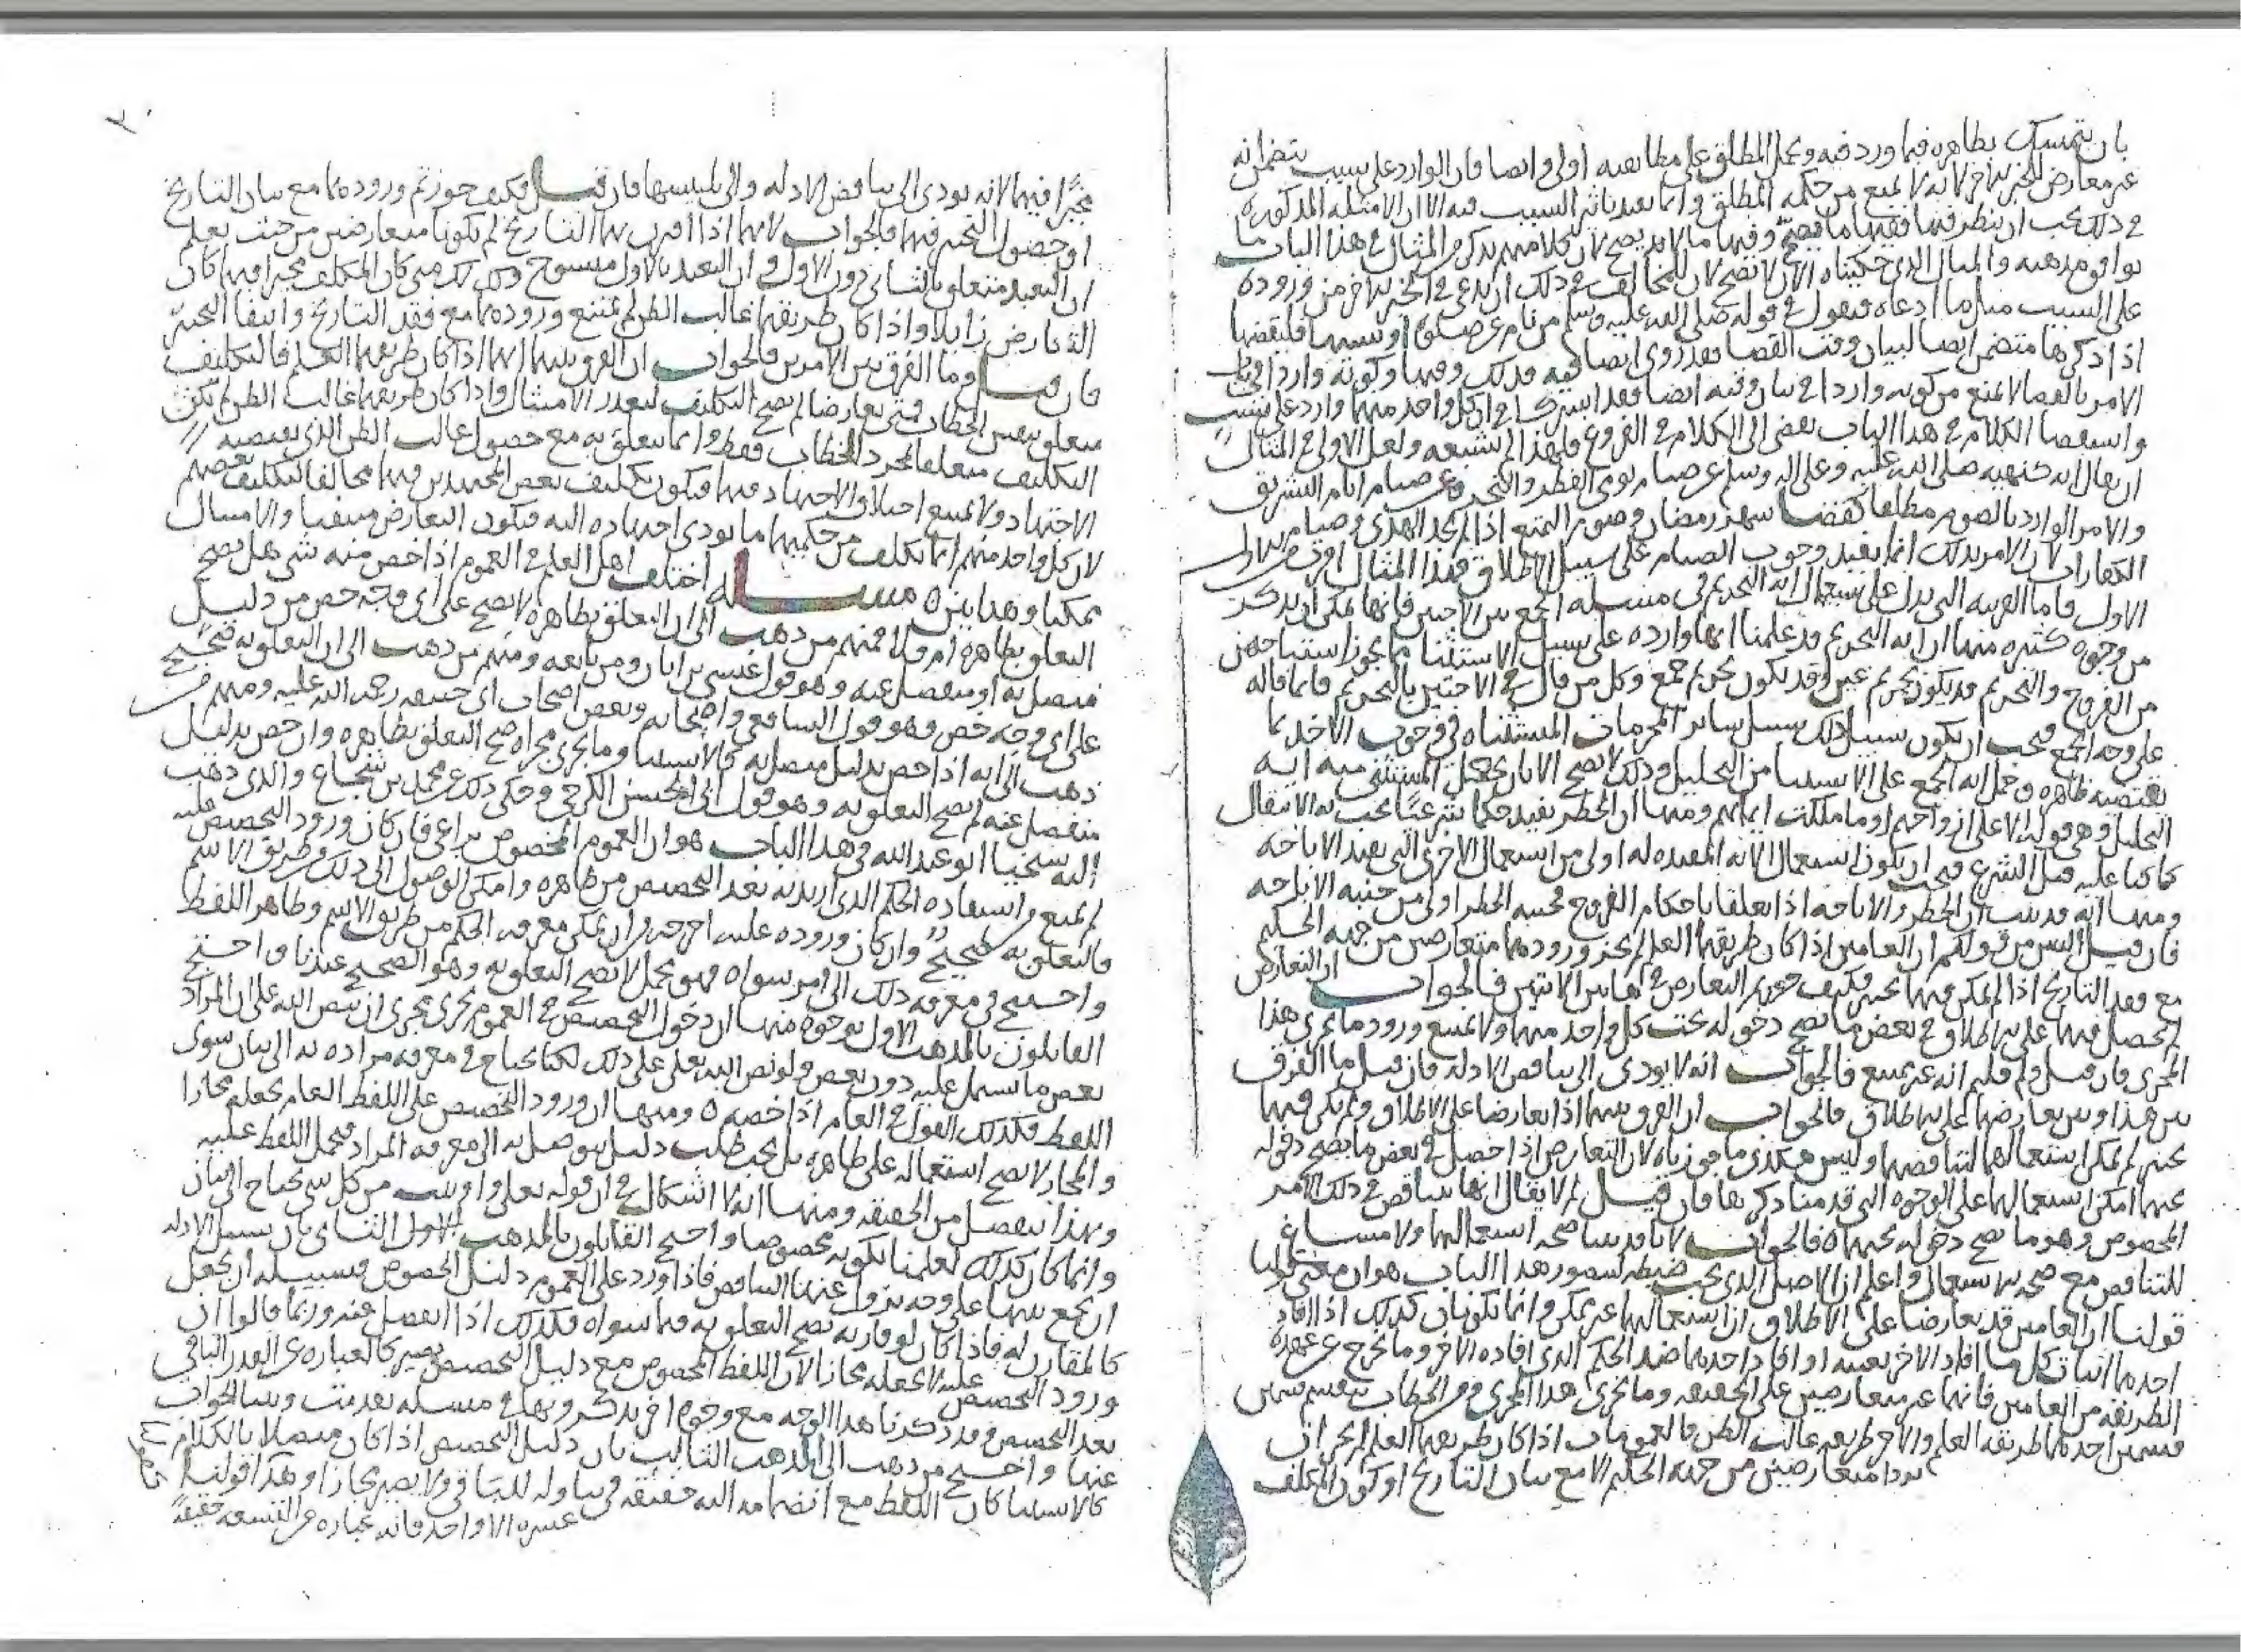 بان يتمسك بظاهره فيما ورد فيه ويحمل المطلق على مطابقته اولى وايضا فان الوارد على سبب يتضمن انه
غير معارض للخبر الاخر لانه لا يمنع من حكمه المطلق وانما يفيد تاثير السبب فيه الا ان الامثلة المذكورة
في ذلك يجب ان ينظر فيها ففيها ما يصح وفيها ما لا يصح لان كلامهم يذكر من المثال في هذا الباب ما
يوافق مذهبه والمثال الذي حكيناه الان لا يصح لان للمخالف في ذلك ان يدعي في الخبر الاخر من وروده
على السبب مثل ما ادعاه فيقول في قوله صلى الله عليه وسلم من نام عن صلوة او نسيها فليقضها
اذا ذكرها متضمن ايضا لبيان وقت القضا فقد روي ايضا فيه فذلك وقتها وكونه واردا في
الامر بالقضا لا يمنع من كونه واردا في بيان وقته ايضا فقد اشتركا في ان كل واحد منهما وارد على سبب
واستقصا الكلام في هذا الباب يفضي الى الكلام في الفروع فلهذا لم نشبعه ولعل الاولى في المثال
ان يقال انه كنهيه صلى الله عليه وعلى اله وسلم عن صيام يومي الفطر والنحر وعن صيام ايام التشريق
والامر الوارد بالصوم مطلقا كقضا شهر رمضان وصوم المتمتع اذا لم يجد الهدي وصيام
الكفارات لان الامر بذلك انما يفيد وجوب الصيام على سبيل الاطلاق فهذا المثال اقرب من
الاول فاما القرينة التي تدل على استعمال اية التحريم في مسئلة الجمع بين الاختين فانها يمكن ان يذكر
من وجوه كثيرة منها ان اية التحريم قد علمنا انها واردة على سبيل الاستثنا مما يجوز استباحته
من الفروج والتحريم قد يكون تحريم عين وقد يكون تحريم جمع وكل من قال في الاختين بالتحريم فانما قاله
على وجه الجمع فيجب ان يكون سبيل ذلك سبيل سائر المحرمات المستثناه في وجوب الاخذ بما
يقتضيه ظاهره وحمل اية الجمع على الاستثنا من التحليل وذلك لا يصح الا بان يجعل المستثنى منه اية
التحليل وهي قوله الا على ازواجهم او ما ملكت ايمانهم ومنها ان الحظر يفيد حكما شرعيا يجب به الانتقال
كما كنا عليه قبل الشرع فيجب ان يكون استعمال الاية المفيدة له اولى من استعمال الاخرى التي تفيد الاباحة
ومنها انه قد ثبت ان الحظر والاباحة اذا تعلقا باحكام الفروج فجنبه الحظر اولى من جنبه الاباحة
فان قيل اليس من قولكم ان العامين اذا كان طريقهما العلم لم يجز ورودهما متعارضين من جهة الحكيم
مع فقد التاريخ اذا لم يمكن فيهما تخيير فكيف جوزتم التعارض في هاتين الايتين فالجواب ان التعارض
لم يحصل فيهما على الاطلاق في بعض ما يصح دخوله تحت كل واحد منهما ولا يمتنع ورود ما يجري هذا
المجرى فان قيل ولم قلتم انه غير ممتنع فالجواب انه لا يودي الى تناقض الادلة فان قيل ما الفرق
بين هذا وبين تعارضهما على الاطلاق فالجواب ان الفرق بينهما اذا تعارضا على الاطلاق ولم يكن فيهما
تخيير لم يمكن استعمالهما لتناقضهما وليس هكذى ما جوزناه لان التعارض اذا حصل في بعض ما يصح دخوله
تحتهما امكن استعمالهما على الوجوه التي قدمنا ذكرها فان قيل لم لا يقال انهما تناقض في ذلك الامر
المخصوص وهو ما يصح دخوله تحتهما فالجواب لانا قد بينا صحة استعمالهما ولا مساغ
للتناقض مع صحة الاستعمال واعلم ان الاصل الذي يجب ضبطه لتصور هذا الباب هو ان معنى قولنا
قولنا ان العامين قد تعارضا على الاطلاق ان استعمالهما غير ممكن وانما يكونان كذلك اذا افاد
احدهما اثبات كل ما افاد الاخر نفيه او افاد احدهما ضد الحكم الذي افاده الاخر وما يخرج عن عهدة
الطريقة من العامين فانهما غير متعارضين على الحقيقة وما يجري هذا المجرى من الخطاب ينقسم قسمين
قسمين احدهما طريقه العلم والاخر طريقه غالب الظن فالعمومات اذا كان طريقها العلم لم يجز ان
يردا متعارضين من جهة الحكيم الا مع بيان التاريخ او كون المكلف
٣٠
مخيرا فيهما لانه يودي الى تناقض الادلة والى تلبيسها فان قيل فكيف جوزتم ورودهما مع بيان التاريخ
او حصول التخيير فيهما فالجواب لانهما اذا اقترن بهما التاريخ لم يكونا متعارضين من حيث يعلم
ان التعبد متعلق بالثاني دون الاول وان التعبد بالاول منسوخ وكذلك متى كان المكلف مخيرا فيهما كان
التعارض زايلا واذا كان طريقهما غالب الظن لم يمتنع ورودهما مع فقد التاريخ وانتفا التخيير
فان قيل وما الفرق بين الامرين فالجواب ان الفرق بينهما انهما اذا كان طريقهما العلم فالتكليف
متعلق بنفس الخطاب فمتى تعارضا لم يصح التكليف لتعذر الامتثال واذا كان طريقهما غالب الظن لم يكن
التكليف متعلقا بمجرد الخطاب فقط وانما يتعلق به مع حصول غالب الظن الذي يقتضيه
الاجتهاد ولا يمتنع اختلاف الاجتهاد فيهما فيكون تكليف بعض المجتهدين فيهما مخالفا لتكليف بعضهم
لان كل واحد منهم انما يكلف من حكمهما ما يودي اجتهاده اليه فيكون التعارض منتفيا والامتثال
ممكنا وهذا بين مسئلة اختلف اهل العلم في العموم اذا خص منه شي هل يصح
التعلق بظاهره ام لا فمنهم من ذهب الى ان التعلق بظاهره لا يصح على اي وجه خص من دليل
متصل به او منفصل عنه وهو قول عيسى بن ابان ومن تابعه ومنهم من ذهب الى ان التعلق به صحيح
على اي وجه خص وهو قول الشافعي واصحابه وبعض اصحاب ابي حنيفة رحمة الله عليه ومنهم من
ذهب الى انه اذا خص بدليل متصل به كالاستثنا وما يجري مجراه صح التعلق بظاهره وان خص بدليل
منفصل عنه لم يصح التعلق به وهو قول ابي الحسن الكرخي وحكى ذلك عن محمد بن شجاع والذي ذهب
اليه شيخنا ابو عبد الله في هذا الباب هو ان العموم المخصوص يراعى فان كان ورود التخصيص عليه
لم يمنع من استفادة الحكم الذي اريد به بعد التخصيص من ظاهره وامكن الوصول الى ذلك من طريق الاسم
فالتعلق به صحيح وان كان وروده عليه اخرجه من ان يمكن معرفة الحكم من طريق الاسم وظاهر اللفظ
واحتيج في معرفة ذلك الى امر سواه فهو مجمل لا يصح التعلق به وهو الصحيح عندنا واحتج
القايلون بالمذهب الاول بوجوه منها ان دخول التخصيص في العموم يجري مجرى ان ينص الله على ان المراد
بعض ما يشتمل عليه دون بعض ولو نص الله تعلى على ذلك لكنا نحتاج في معرفة مراده به الى بيان سوى
اللفظ فكذلك القول في العام اذا خصه ومنها ان ورود التخصيص على اللفظ العام يجعله مجازا
والمجاز لا يصح استعماله على ظاهره بل يجب طلب دليل يتوصل به الى معرفة المراد فيحمل اللفظ عليه
وبهذا ينفصل من الحقيقة ومنها انه لا اشكال في ان قوله تعلى واوتيت من كل شي يحتاج الى بيان
وانما كان كذلك لعلمنا بكونه مخصوصا واحتج القايلون بالمذهب الثاني بان سبيل الادلة
ان يجمع بينها على وجه يزول عنها التناقض فاذا ورد على العموم دليل الخصوص فسبيله ان يجعل
كالمقارن له فاذا كان لو قارنه يصح التعلق به فيما سواه فكذلك اذا انفصل عنه وربما قالوا ان
ورود التخصيص عليه لا يجعله مجازا لان اللفظ المخصوص مع دليل التخصيص يصير كالعبارة عن القدر الباقي
بعد التخصيص وقد ذكرنا هذا الوجه مع وجوه اخر يذكرونها في مسئلة تقدمت وبينا الجواب
عنها واحتج من ذهب الى المذهب الثالث بان دليل التخصيص اذا كان متصلا بالكلام
كالاستثنا كان اللفظ مع انضمامه اليه حقيقة في تناوله للباقي ولا يصير مجازا وهذا قولنا
عشرة الا واحد فانه عبارة عن التسعة حقيقة